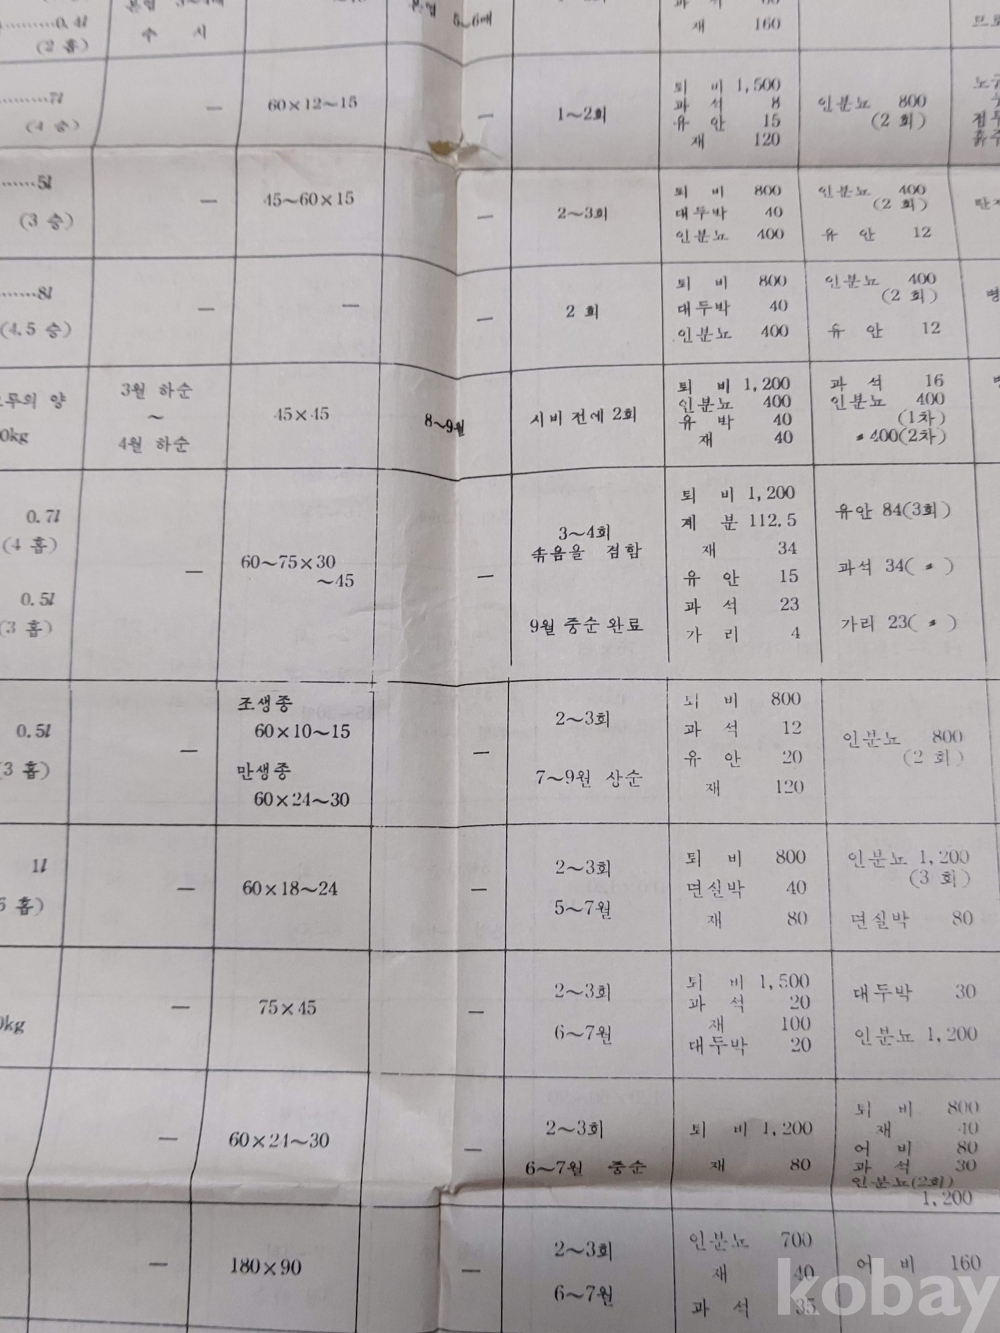 0.4l
(2 홉)
수 시
5~6매
재 160
7l
(4 승)
—
60×12~15
—
1~2회
퇴 비 1,500
과 석 8
유 안 15
재 120
인분뇨 800
(2 회)
5l
(3 승)
—
45~60×15
—
2~3회
퇴 비 800
대두박 40
인분뇨 400
인분뇨 400
(2 회)
유 안 12
8l
(4.5 승)
—
—
—
2 회
퇴 비 800
대두박 40
인분뇨 400
인분뇨 400
(2 회)
유 안 12
양
0kg
3월 하순
~
4월 하순
45×45
8~9월
시비 전에 2회
퇴 비 1,200
인분뇨 400
유 박 40
재 40
과 석 16
인분뇨 400
(1차)
〃400(2차)
0.7l
(4 홉)
0.5l
(3 홉)
—
60~75×30
~45
—
3~4회
솎음을 겸함
9월 중순 완료
퇴 비 1,200
계 분 112.5
재 34
유 안 15
과 석 23
가 리 4
유안 84(3회)
과석 34( 〃 )
가리 23( 〃 )
0.5l
(3 홉)
—
조생종
60×10~15
만생종
60×24~30
—
2~3회
7~9월 상순
퇴 비 800
과 석 12
유 안 20
재 120
인분뇨 800
(2 회)
1l
홉)
—
60×18~24
—
2~3회
5~7월
퇴 비 800
면실박 40
재 80
인분뇨 1,200
(3 회)
면실박 80
0kg
—
75×45
—
2~3회
6~7월
퇴 비 1,500
과 석 20
재 100
대두박 20
대두박 30
인분뇨 1,200
—
60×24~30
—
2~3회
6~7월 중순
퇴 비 1,200
재 80
퇴 비 800
재 40
어 비 80
과 석 30
인분뇨(2회)
1,200
—
180×90
—
2~3회
6~7월
인분뇨 700
재 40
과 석 35
어 비 160
kobay